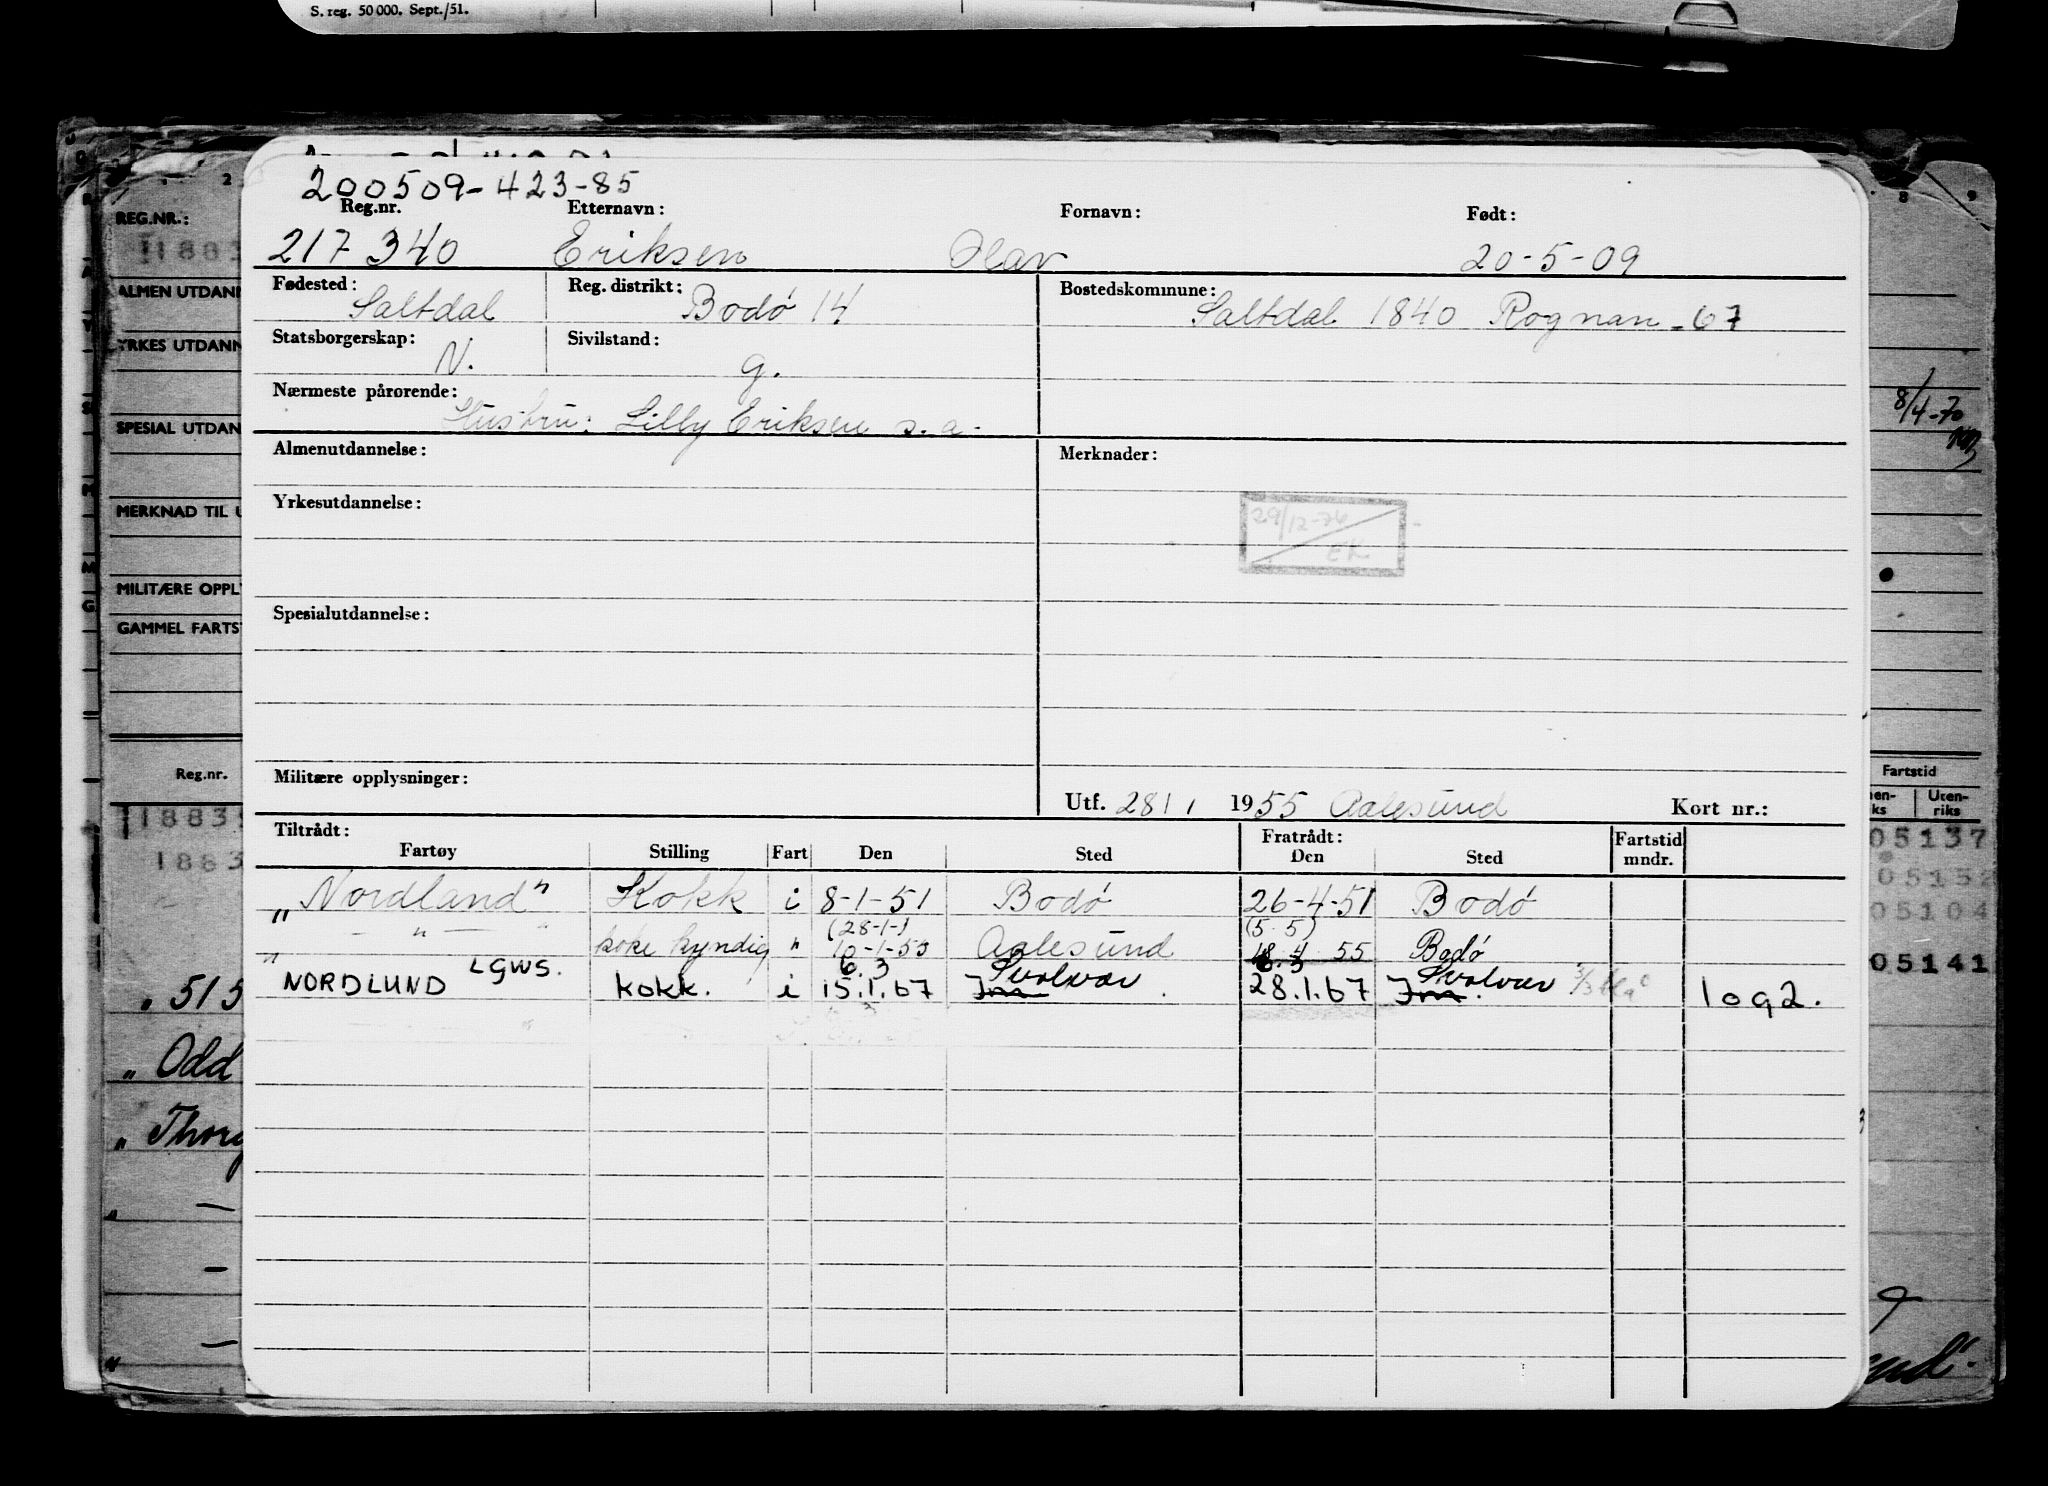 S. reg. 50 000. Sept./51.
200509-423-85
Reg.nr. Etternavn: Fornavn: Født:
217340 Eriksen Olav 20-5-09
Fødested: Reg. distrikt: Bostedskommune:
Saltdal Bodø 14 Saltdal 1840 Rognan -67
Statsborgerskap: Sivilstand:
N. g.
Nærmeste pårørende:
Hustru: Lilly Eriksen s.a.
Almenutdannelse: Merknader:
Yrkesutdannelse:
29/12-76
EK
Spesialutdannelse:
Militære opplysninger:
Utf. 28/1 1955 Aalesund Kort nr.:
Tiltrådt: Fratrådt: Fartstid
Fartøy Stilling Fart Den Sted Den Sted mndr.
„Nordland" Kokk i 8-1-51 Bodø 26-4-51 Bodø
(28-1-) (5 5)
„ — " — " koke kyndig " 10-1-55 Aalesund 18 4 55 Bodø
6.3 Svolvær 6.3 Svolvær
NORDLUND LGWS. kokk. i 15.1.67 Jm 28.1.67 Jm. 1 og 2.
1 2
REG.NR.:
11883
ALMEN UTDANN
YRKES UTDANN
SPESIAL UTDAN
MERKNAD TIL U
MILITÆRE OPPL
GAMMEL FARTST
Reg.nr.
11883
1883
„ 515
„ Odd
„ Thor
8 9
8/4-70
Fartstid
nen-
ks
Uten-
riks
05137
05132
05104
05141